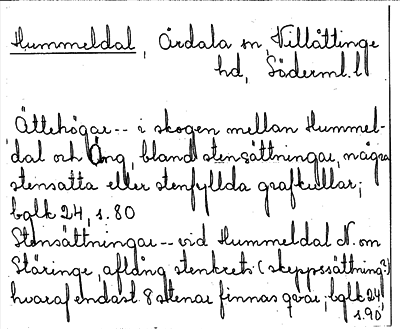 Hummeldal, Årdala sn, Villåttinge
hd, Söderml. l
Ättehögar -- i skogen mellan Hummel-
dal och Äng, bland stensättningar, några
stensatta eller stenfyllda grafkullar;
bglk 24, s. 80
Stensättningar -- vid Hummeldal N. om
Stäringe, aflång stenkrets (skeppssättning?)
hvaraf endast 8 stenar finnas qvar; bglk 24
s. 90